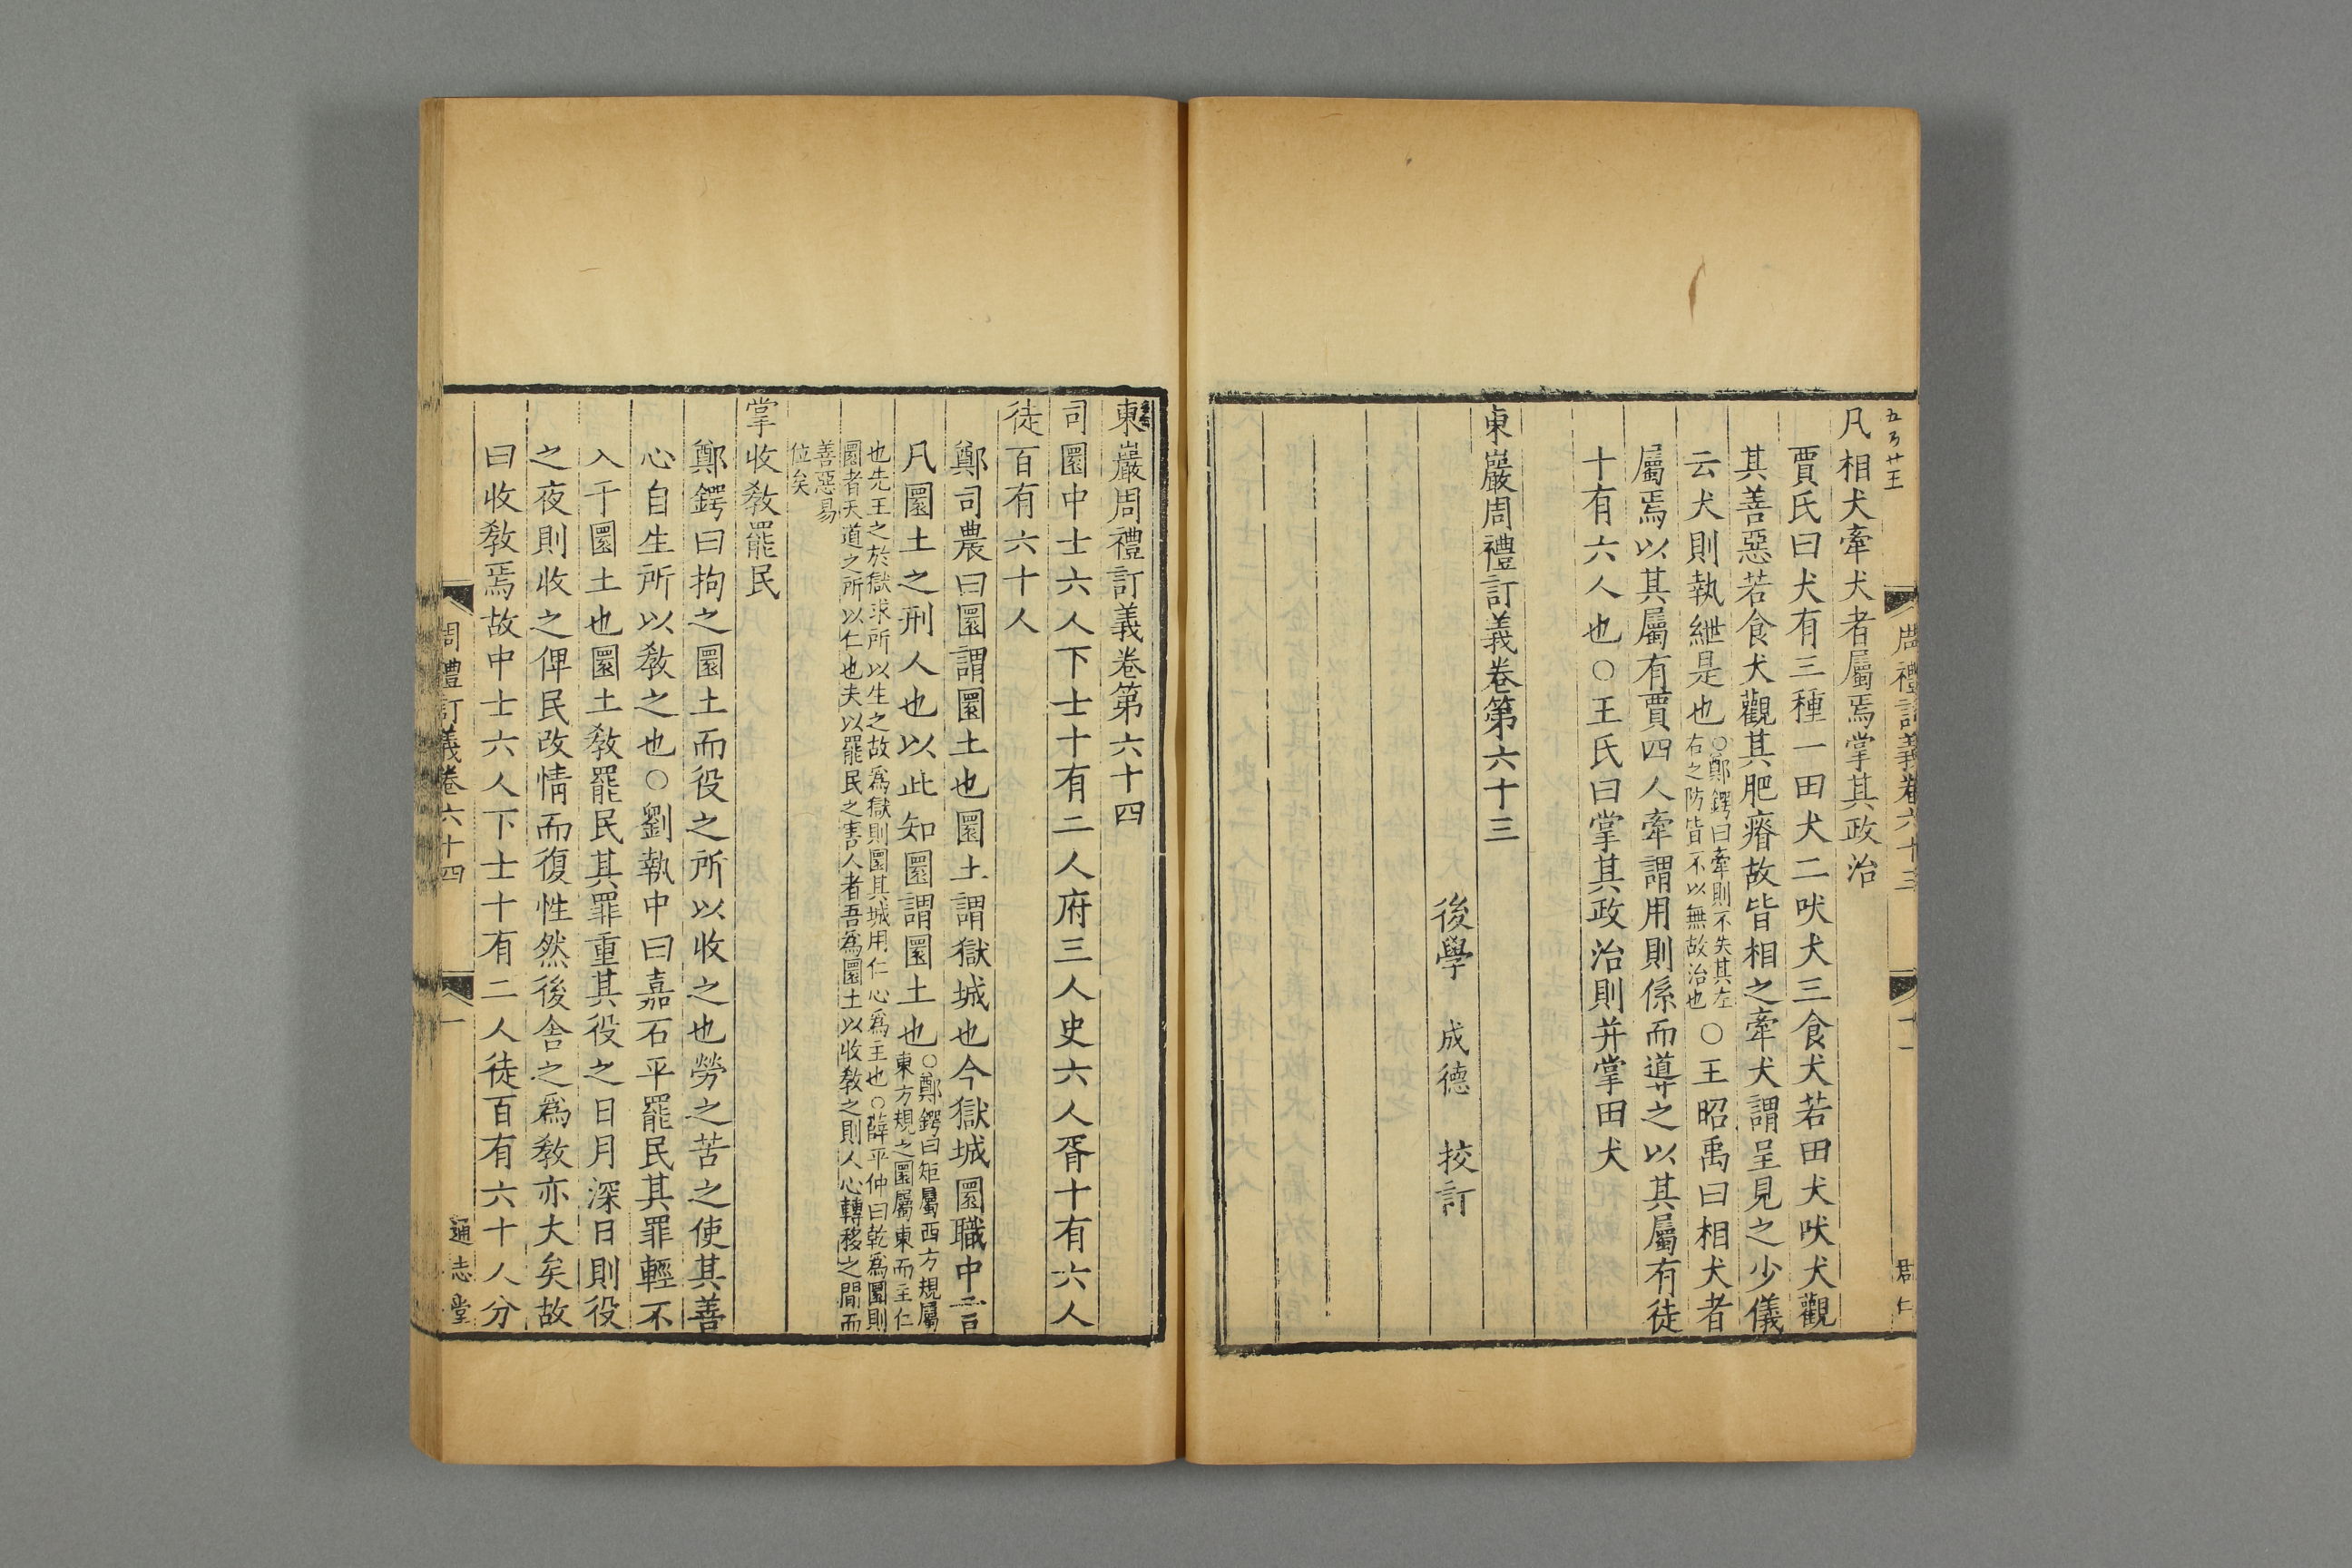 凡相犬牽犬者屬焉掌其政治
賈氏曰犬有三種一田犬二吠犬三食犬若田犬吠犬觀
其善惡若食犬觀其肥瘠故皆相之牽犬謂呈見之少儀
云犬則執紲是也○鄭鍔曰牽則不失其左右之防皆不以無故治也○王昭禹曰相犬者
屬焉以其屬有賈四人牽謂用則係而導之以其屬有徒
十有六人也○王氏曰掌其政治則并掌田犬
東巖周禮訂義卷第六十三
後學 成德 挍訂
東巖周禮訂義卷第六十四
司圜中士六人下士十有二人府三人史六人胥十有六人
徒百有六十人
鄭司農曰圜謂圜土也圜土謂獄城也今獄城圜職中言
凡圜土之刑人也以此知圜謂圜土也○鄭鍔曰矩屬西方規屬東方規之圜屬東而主仁
也先王之於獄求所以生之故爲獄則圜其城用仁心爲主也○薛平仲曰乾爲圜則
圜者天道之所以仁也夫以罷民之害人者吾爲圜土以收敎之則人心轉移之間而
善惡易
位矣
掌收敎罷民
鄭鍔曰拘之圜土而役之所以收之也勞之苦之使其善
心自生所以敎之也○劉執中曰嘉石平罷民其罪輕不
入于圜土也圜土敎罷民其罪重其役之日月深日則役
之夜則收之俾民改情而復性然後舍之爲敎亦大矣故
曰收敎焉故中士六人下士十有二人徒百有六十人分
周禮訂義卷六十四
一
通志堂
周禮訂義卷六十三
十一
君仁